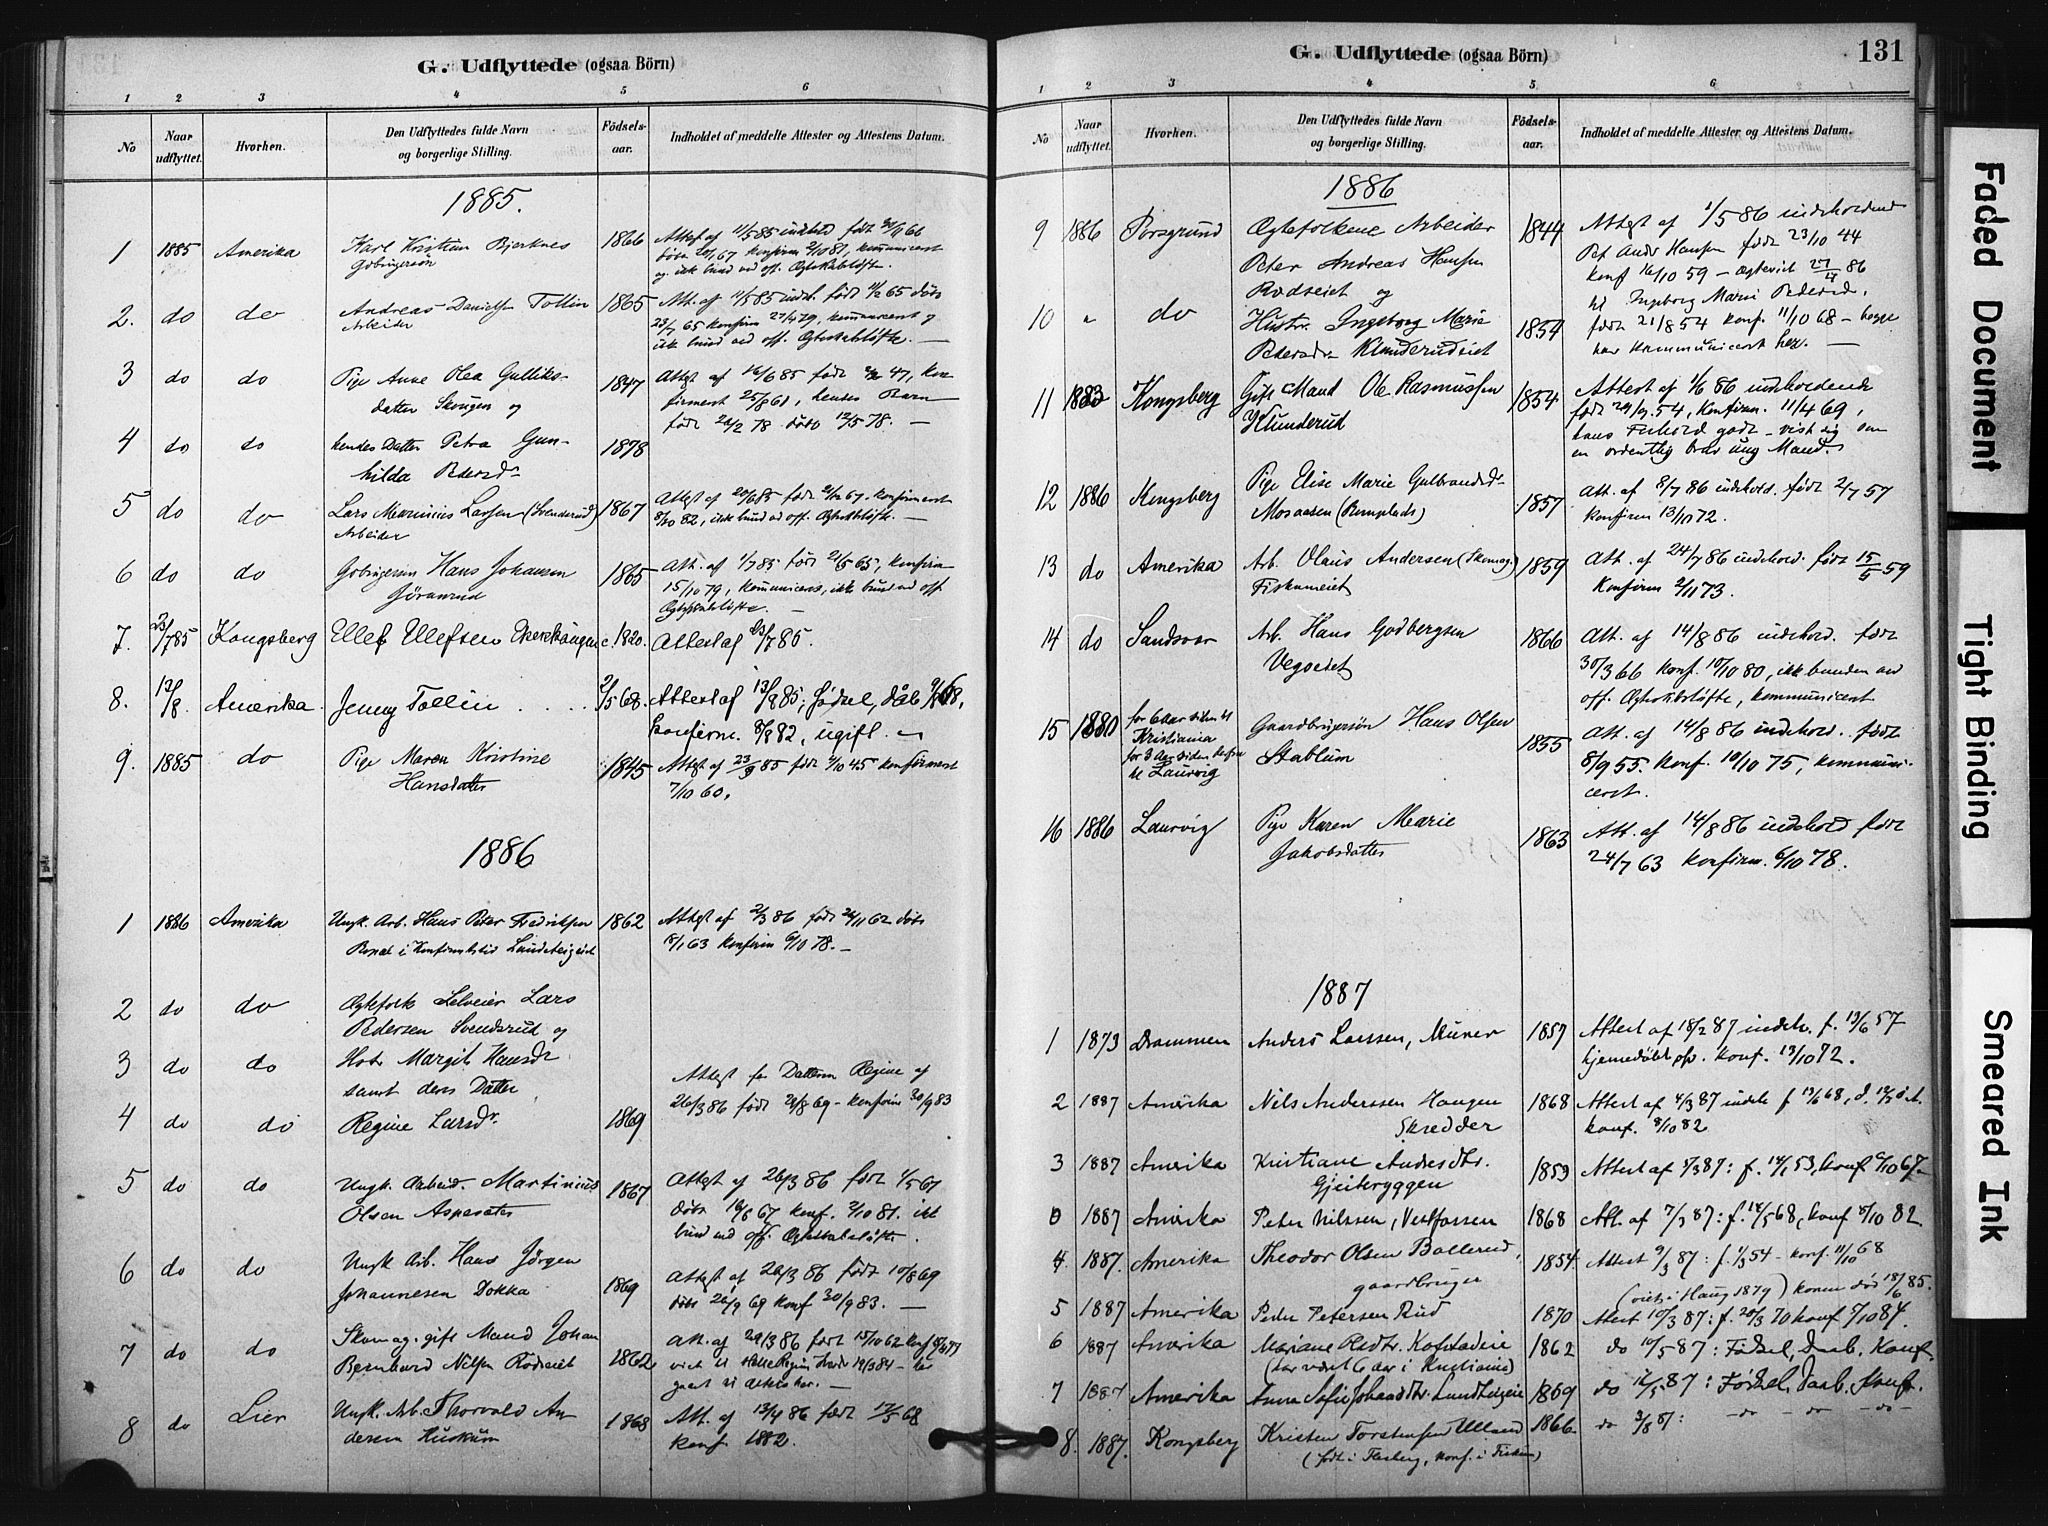 G. Udflyttede (ogsaa Börn)
1 2 3 4 5 6
No Naar udflyttet. Hvorhen. Den Udflyttedes fulde Navn og borgerlige Stilling. Födsels-aar. Indholdet af meddelte Attester og Attestens Datum.
1885.
1 1885 Amerika Karl Kristian Bjerknes 1866 Attest af 11/5 85
2. do do Andreas Danielsen Tollin 1865 Att. af 11/5 85 indh. født 11/2 65 døbt
Arbeider 23/7 65 konfirm 27/4 79, kommunicert og
ikk bund ved off. Ægteskabsløfte. —
3 do do Pige Anne Olea Gulliks- 1847 Attest af 16/6 85 født 47, kon-
datter Skougen og firmert 25/8 61, hendes Barn
født 26/2 78 døbt 12/5 78. —
4 do do hendes Datter Petra Gun- 1878
hilda Pedersdr
5 do do Lars Marinius Larsen (Svenderud) 1867 Attest af 20/6 85 født 67. konfirmert
Arbeider 8/10 82, ikk bund ved off. Ægteskabsløfte. —
6 do do Hans Johansen 1865 Att. af 1/7 85 født 21/5 65, konfirm
Jøranrud 15/10 79, kommunicert, ikk bund ved off.
Ægteskabsløfte. —
7. 23/7 85 Kongsberg Ellef Ellefsen c. 1820. Attest af 23/7 85.
8. 13/8. Amerika. Jenny Tollin . . . . 2/5 68. Attest af 13/8 85, fødsel, dåb
konfirm. 8/8 82, ugift.
9. 1885 do Pige Maren Kristine 1845 Attest af 23/9 85 født 4/10 45 konfirmert
Hansdatter 7/10 60.
1886
1 1886 Amerika Ungk. Arb. Hans Peter Fredriksen 1862 Attest af 2/3 86 født 26/11 62 døbt
18/1 63 konfirm 6/10 78. —
2 do do Ægtefolk Selveier Lars
Pedersen Svenderud og
3 do do Hstr Margit Hansdr
samt deres Datter Attest for Datteren Regine af
4 do do Regine Larsdr. 1869 26/3 86 født 21/8 69 – konfirm 30/9 83
5 do do Ungk. Arbeid. Martinius 1867 Attest af 26/3 86 født 1/5 67
Olsen Aspesæter døbt 16/6 67 konf. 2/10 81. ikk
bund ved off. Ægteskabsløfte.
6 do do Ungk Arb. Hans Jørgen 1869 Attest af 26/3 86 født 10/8 69
Johannesen Dokka døbt 26/9 69 konf 30/9 83. —
7 do do Skomag. gift Mand Johan 1862 Att. af 29/3 86 født 15/10 62 konf
Bernhard Nilsen Rødseiet viet til
8 do Lier Ungk. Arb. Thorvald An- 1868 Att. af 13/4 86 født 17/3 68
dersen Huskum konf. 1882.
G. Udflyttede (ogsaa Börn) 131
1 2 3 4 5 6
No Naar udflyttet. Hvorhen. Den Udflyttedes fulde Navn og borgerlige Stilling. Födsels-aar. Indholdet af meddelte Attester og Attestens Datum.
1886
9 1886 Porsgrund Ægtefolkene Arbeider 1844 Attest af 1/5 86 indeholdend
Peter Andreas Hansen Pet Andr Hansen født 23/10 44
Rødseiet og konf 16/10 59 – Ægteviet 27/4 86
10 " do Hustr. Ingeborg Marie 1854 til Ingeborg Marie Pedersd.
Pedersdr Klunderudeiet født 21/8 54 konf. 11/10 68 – begge
har kommunicert her. —
11 1883 Kongsberg Gift Mand Ole Rasmussen 1854 Attest af 1/6 86 indeholdende
Klunderud født 54, konfirm. 11/4 69,
hans Forhold godt – vist sig som
en ordentlig brav ung Mand.
12 1886 Kongsberg Pige Elise Marie Gulbrandsd 1857 Att. af 8/7 86 indhold. født 2/7 57
Moraasen konfirm 13/10 72.
13 do Amerika Arb. Olaus Andersen (Skomag.) 1859 Att. af 24/7 86 indehold. født 15/5 59
Fiskumeiet Konfirm 2/11 73.
14 do Sandsvær Arb. Hans Godbergsen 1866 Att. af 14/8 86 indehold. født
30/3 66 konf. 10/10 80, ikk bunden ved
off. Ægteskbsløfte, kommunicert
15 1880 for 6 Aar siden til Kristiania Gaardbrugersøn Hans Olsen 1855 Att. af 14/8 86 indehold. født
for 3 Aar siden til Laurvig Stablum 8/9 55. konf. 10/10 75, kommuni-
cert.
16 1886 Laurvig Pige Karen Marie 1863 Att. af 14/8 86 indehold født
Jakobsdatter 24/7 63 konfirm. 6/10 78.
1887
1 1873 Drammen Anders Larssen, Murer 1857 Attest af 18/2 87 indeh. f. 13/6 57
hjemedøbt konf. 13/10 72.
2 1887 Amerika Nils Anderssen Haugen 1868 Attest af 4/3 87 indeh f 13/6 68,
Skredder konf. 8/10 82
3 1887 Amerika Kristiane Andersdtr. 1853 Attest af 5/3 87: f. 14/1 53, konf 6/10 67
Gjeiteryggen
1887 Amerika Peter Nilssen, Vestfossen 1868 Att. af 7/3 87: f. 18/5 68, konf 8/10 82
4 1887. Amerika Theodor Olsen Bollerud, 1854. Attest 9/3 87: f. 1/3 54 - konf. 11/10 68
gaardbruger (viet i Haug 1879) konen død 18/6 85.
5 1887 Amerika Peder Petersen Rud 1870 Atest 10/3 87: f. 20/3 70 konf 5/10 84.
6 1887 Amerika Mariane 1862 do 10/5 87: Fødsel, Daab, Konf.
(har været 6 aar i Kristiania)
7 1887 Amerika Anna Sofie Johansdtr. 1869 do 12/5 87: Fødsel, Daab, Konf.
8. 1887. Kongsberg Kristen Torstensen 1866. do 3/8 87: - do - do - do -
(født i Flesberg, konf. i Fiskum)
Faded Document
Tight Binding
Smeared Ink